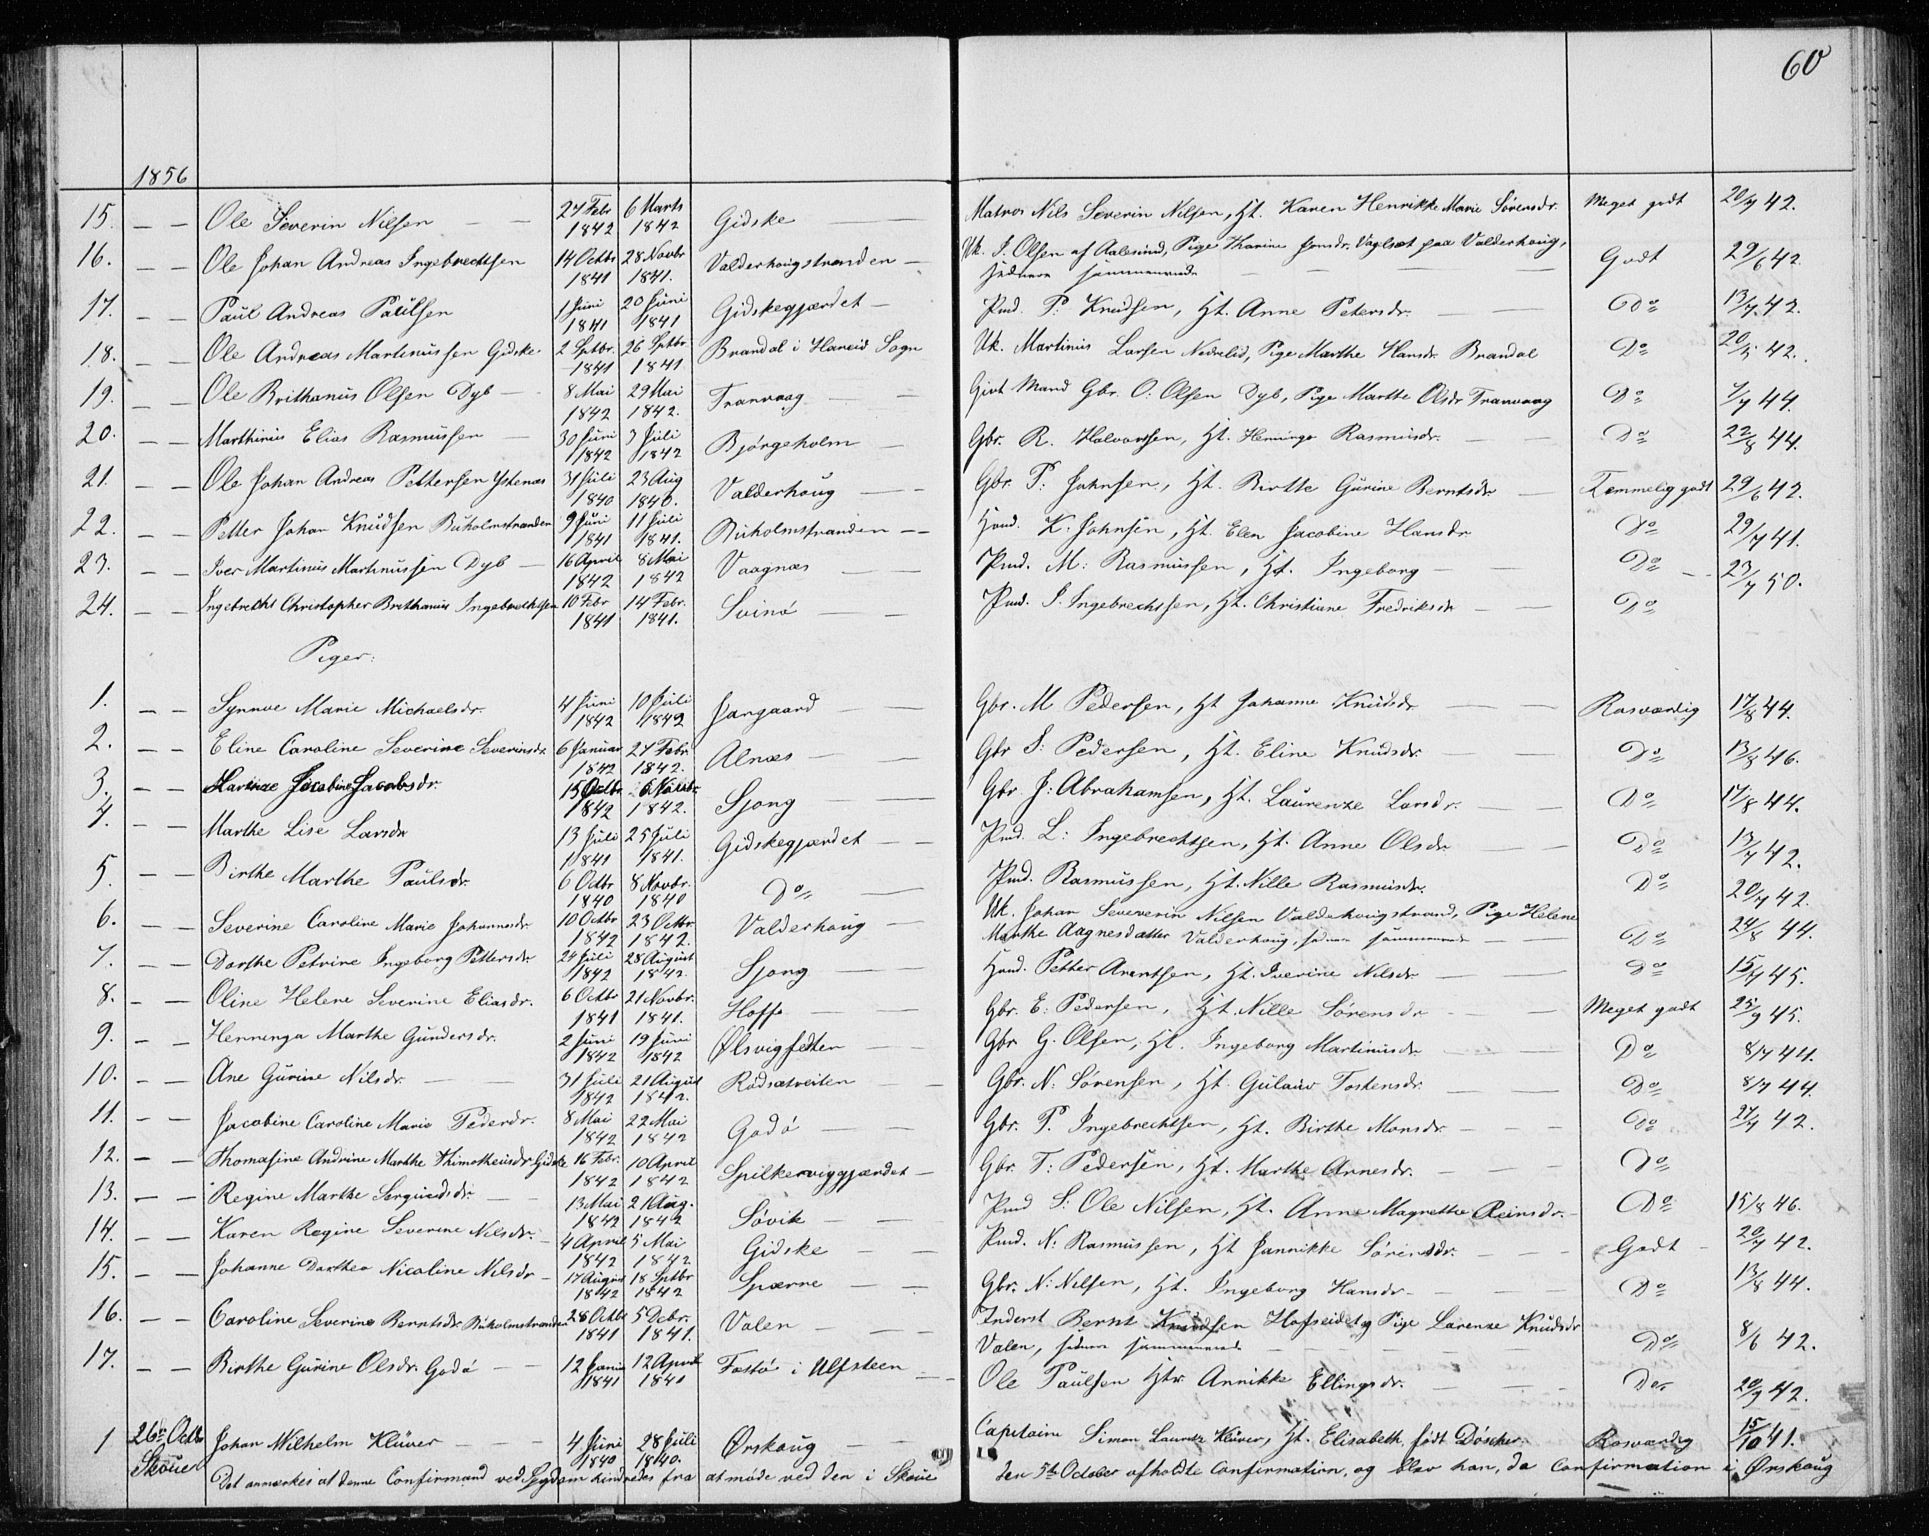 60
1856
15. — — Ole Severin Nilsen — — 27 Febr 1842 6 Marts 1842 Gidske — Matros Nils Severin Nilsen, Ht. Karen Henrikke Marie Sörensdr. Meget godt 20/7 42.
16. — — Ole Johan Andreas Ingebrechtsen 14 Octbr 1841 28 Novbr 1841. Valderhougstranden — Uk. J. Olsen af Aalesund, Pige Karine Jonsdr. paa Valderhoug, 29/6 42.
Godt
17. — — Paul Andreas Paulsen 1 Juni 1841 20 Juni 1841 Gidskegjærdet — Pmd. P. Knudsen, Ht. Anne Petersdr. — — Do 13/7 42.
18. — — Ole Andreas Martinussen Gidske 2 Sptbr. 1841 26 Sptbr. 1841 Brandal i Hareid Sogn Uk. Martinus Larsen Nedrelid, Pige Marthe Hansdr. Brandal Do 20/5 42.
19. — — Ole Brithanus Olsen Dyb — 8 Mai 1842 29 Mai 1842. Tranvaag — — Givt Mand Gbr. O. Olsen Dyb, Pige Marthe Olsdr Tranvaag Do 7/7 44.
20. — — Marthinus Elias Rasmussen — 30 Juni 1842 3 Juli 1842 Bjørgeholm — Gbr. R. Halvorssen, Ht. Henninge Rasmusdr. — Do 22/8 44.
21. — — Ole Johan Andreas Pettersen Ystenæs 31 Juli 1840 23 Aug 1840. Valderhoug — — Gbr. P. Johnsen, Ht. Birtte Gurine Berntsdr — Temmelig godt 29/6 42.
22. — — Petter Johan Knudsen Buholmstranden 9 Juni 1841 11 Juli 1841. Buholmstranden — — Huusmd. K. Johnsen, Ht. Elen Jacobine Hansdr Do 29/7 41.
23. — — Iver Martinus Martinussen Dyb — 16 April 1842 8 Mai 1842 Vaagnæs — — Pmd. M. Rasmussen, Ht. Ingeborg — — Do — 23/7 50.
24. — — Ingebrecht Christopher Brithanius Ingebrechtsen 10 Febr 1841 14 Febr. 1841. Svinø — — Pmd. I. Ingebrechtsen, Ht. Christiane Fredriksdr — Do
Piger:
1. — — Synnve Marie Michaelsdr. 4 Juni 1842 10 Juli 1842 Jangaard — — Gbr. M Pedersen, Ht Johanne Knudsdr — Rosværdig 17/8 44.
2. — — Eline Caroline Severine Severinsdr. 6 Januar 1842 27 Febr. 1842. Alnæs — — Gbr S. Pedersen, Ht. Eline Knudsdr. — Do 13/8 46.
3. — — Jacobine Jacobsdr. 15 Octbr. 1842 6 Novbr. 1842. Sjong — — Gbr J. Abrahamsen, Ht. Laurenze Larsdr. — Do 17/8 44.
4. — — Marthe Lise Larsdr 13 Juli 1841 25 Juli 1841. Gidskegjærdet — — Pmd. L. Ingebrechtsen, Ht. Anne Olsdr. — Do 13/7 42.
5. — — Birthe Marthe Paulsdr. 6 Octbr 1840 8 Novbr. 1840 Do — Pmd. Rasmussen, Ht. Nille Rasmusdr. Do 20/7 42.
6. — — Severine Caroline Marie Johannesdr 10 Octbr 1842 23 Octbr. 1842. Valderhoug — Uk. Johan Seveverin Nilsen Valderhougstrand, Pige Helene
Marthe Aagnesdatter Valderhoug, — — Do 24/8 44.
7. — — Dorthe Petrine Ingeborg Pettersdr 24 Juli 1842 28 August 1842. Sjong — — Huusmd. Petter Arentsen, Ht. Iverine Nilsdr — Do 15/7 45.
8. — — Oline Helene Severine Eliasdr. 6 Octbr 1841 21 Novbr. 1841. Hoffe — — Gbr. E. Pedersen, Ht. Nille Sörensdr — Meget godt 25/9 45.
9. — — Henninga Marthe Gundersdr. 2 Juni 1842 19 Juni 1842 Ølsvigfedten — Gbr G. Olsen, Ht. Ingeborg Martinusdr — Do 8/7 44.
10. — — Ane Gurine Nilsdr. — — 31 Juli 1842 21 August 1842. Rødsætveiten — — Gbr. N. Sørensen, Ht. Gulaug Tostensdr. Do 8/7 44.
11. — — Jacobine Caroline Marie Pedersdr. 8 Mai 1842 22 Mai 1842 Godø — — Gbr. P. Ingebrechtsen, Ht. Birthe Monsdr. — Do 27/7 42.
12. — — Thomasine Andrine Marthe Thimotheusdr. Gidske 16 Febr. 1842 10 April 1842 Spilkerviggjærdet — Gbr. T. Pedersen, Ht. Marthe Annesdr. — Do
13. — — Regine Marthe — 13 Mai 1842 21 Aug. 1842 Søvik — — Pmd S. Ole Nilsen, Ht. Anne Magrethe Reinsdr. — Do 15/8 46.
14. — — Karen Regine Severine Nilsdr. — 4 April 1842 5 Mai 1842 Gidske — Pmd. N. Rasmussen, Ht Jannikke Sörensdr. — Godt 20/7 42.
15. — — Johanne Dorthea Nicoline Nilsdr — 17 August 1842 18 Sptbr 1842 Spærne — — Gbr. N. Nilsen, Ht. Ingeborg Hansdr. — Do 13/8 44.
16. — — Caroline Severine Berntsdr. Buholmstranden 28 Octbr 1841 5 Dcbr. 1841. Valen — — Inderst Bernt Knudsen Hofseidet og Pige Lorenze Knudsdr
Valen, — Do 8/6 42.
17. — — Birthe Gurine Olsdr. Godø — 12 1841 12 April 1841 Fostø i Ulfsteen — Ole Paulsen Htr. Annikke Ellingsdr. — Do 20/9 42.
1 26de Octb. Skoue Johan Wilhelm Klüver — — 4 Juni 1840 28 Juli 1840. Ørskoug — Capitaine Simon Lauritz Klüver, Ht. Elisabeth født Döscher. Rosværdig 15/10 41.
Det anmærkes at denne Confirmand ved Sygdom hindredes fra at møde ved den i Skoue den 5te October afholdte Confirmation, og blev han, da Confirmation i Ørskoug